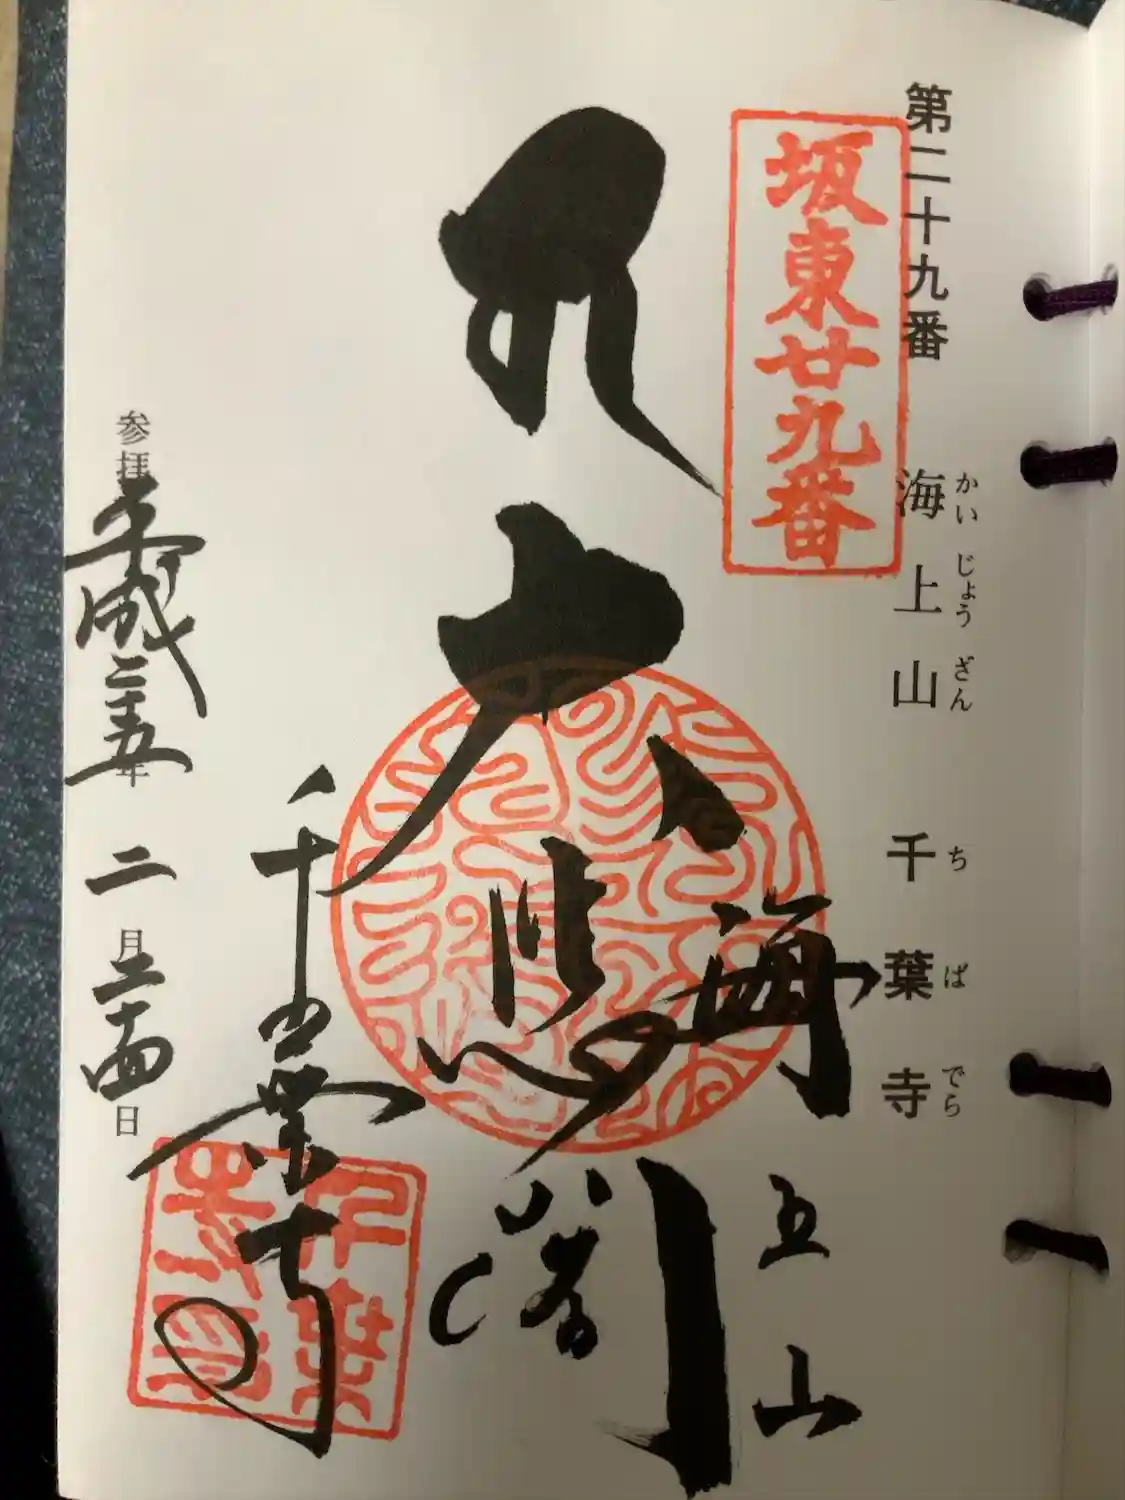 第二十九番 海上山 千葉寺
かいじょうざん ちばでら
坂東廿九番
海上山
大悲閣
千葉寺
参拝 平成二十五年 二月二十四日